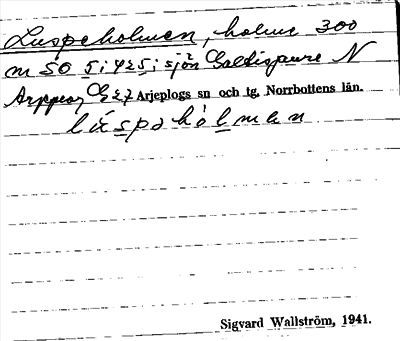 Luspeholmen, holme 300
m SO 5, 425, i sjön Galtispure N
Arjeplogs sn och tg. Norrbottens län.
lüspəhòlmen
Sigvard Wallström, 1941.